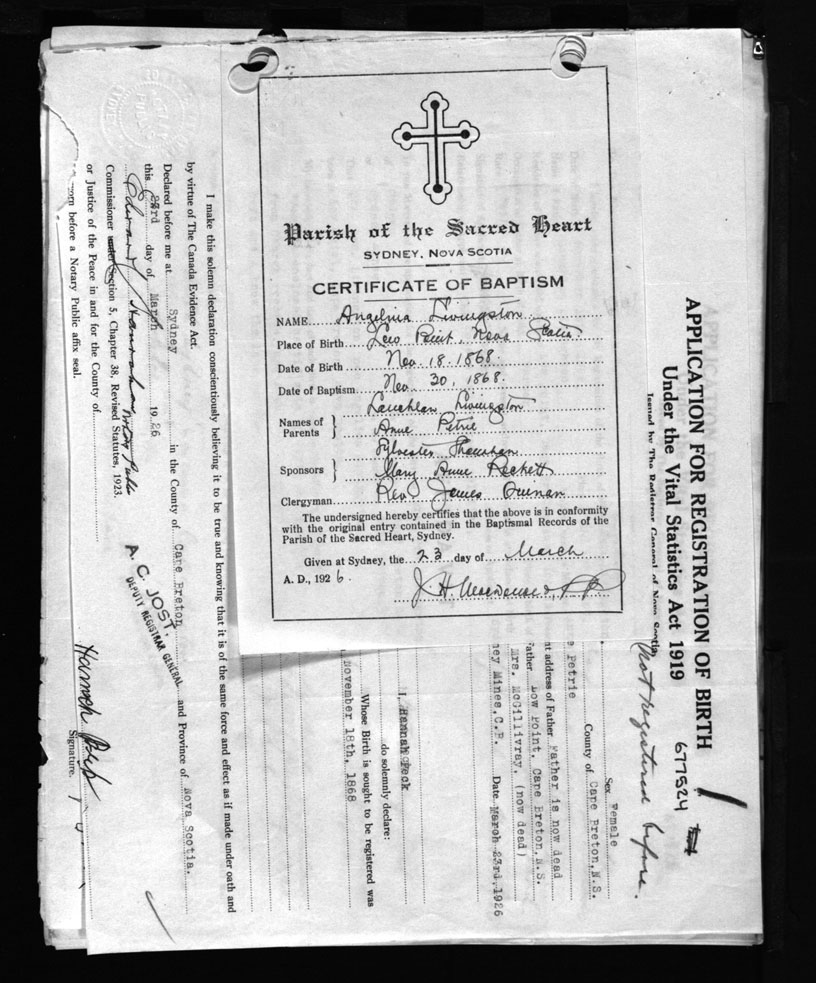 Parish of the Sacred Heart
SYDNEY, NOVA SCOTIA
CERTIFICATE OF BAPTISM
NAME Angelina Livingston
Place of Birth Low Point, Nova Scotia
Date of Birth Nov. 18. 1868.
Date of Baptism Nov. 30, 1868.
Names of Parents } Lauchlan Livingston
Anne Petrie
Sponsors } Sylvester
Mary Anne Rackett
Clergyman Rev James Quinan
The undersigned hereby certifies that the above is in conformity
with the original entry contained in the Baptismal Records of the
Parish of the Sacred Heart, Sydney.
Given at Sydney, the 23 day of March
A. D., 1926.
APPLICATION FOR REGISTRATION OF BIRTH
Under the Vital Statistics Act 1919
Issued by The Registrar General of Nova Scotia
677524
Not registered before.
Sex Female
County of Cape Breton, N.S.
e Petrie
nt address of Father Father is now dead
Father Low Point, Cape Breton, N.S.
Mrs. McGillivray, (now dead)
ney Mines, C.B. Date March 23rd, 1926
I, Hannah Peck
do solemnly declare:
Whose Birth is sought to be registered was
November 18th, 1868
I make this solemn declaration conscientiously believing it to be true and knowing that it is of the same force and effect as if made under oath and
by virtue of The Canada Evidence Act.
Declared before me at Sydney in the County of Cape Breton and Province of Nova Scotia.
this 23rd day of March 1926
Edward Hanrahan Notary Public
Commissioner under Section 5, Chapter 38, Revised Statutes, 1923.
or Justice of the Peace in and for the County of
orn before a Notary Public affix seal.
A. C. JOST.
DEPUTY REGISTRAR GENERAL
Hannah Peck
Signature.